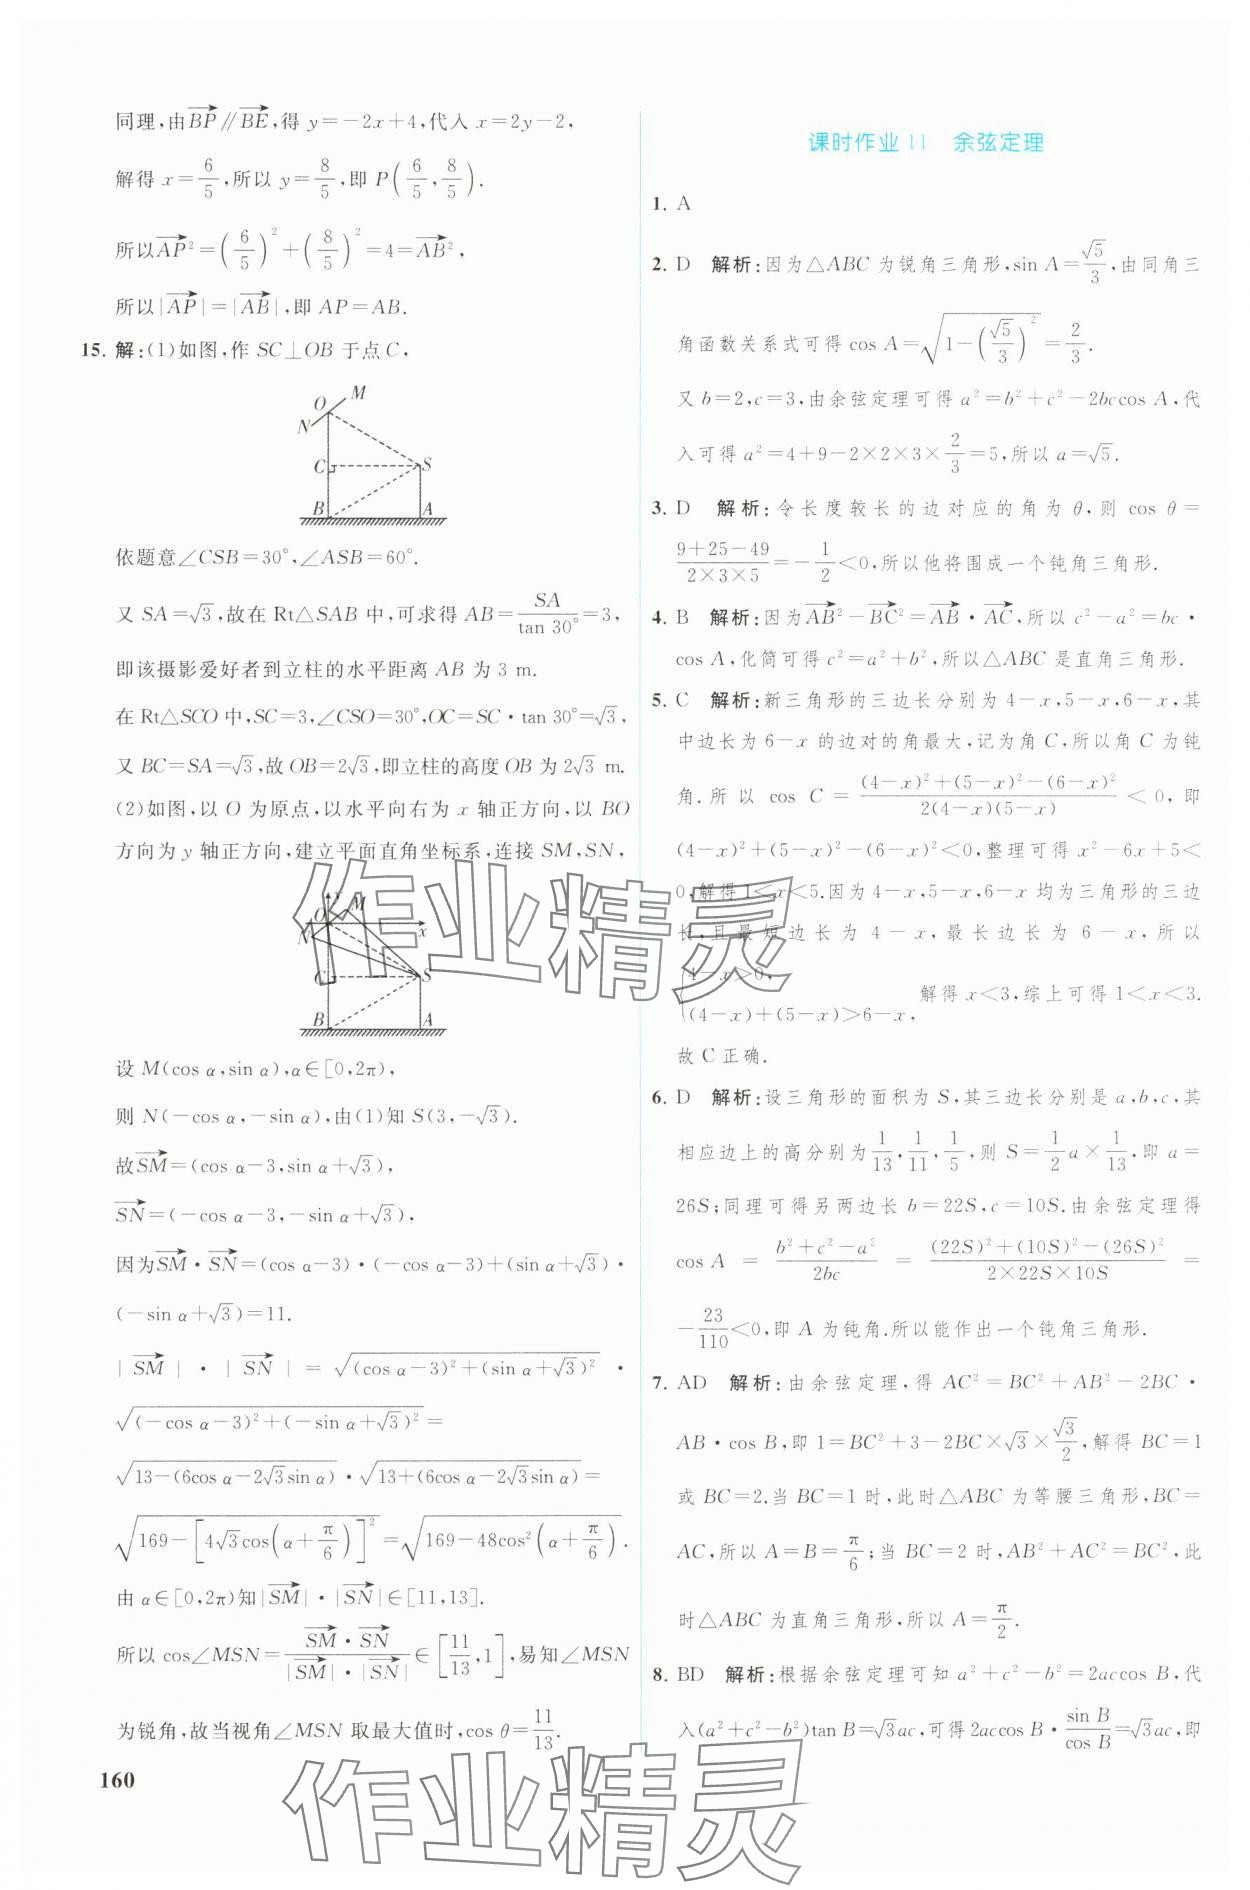 同理,由BP∥BE,得 y=-2x+4,代入 x=2y-2,
解得 x=6/5,所以 y=8/5,即 P(6/5,8/5).
所以AP²=(6/5)²+(8/5)²=4=AB²,
所以|AP|=|AB|,即 AP=AB.
15. 解:(1)如图,作 SC⊥OB 于点 C,
O M
N
C S
B A
依题意∠CSB=30°,∠ASB=60°.
又 SA=√3,故在 Rt△SAB 中,可求得 AB=SA/tan 30°=3,
即该摄影爱好者到立柱的水平距离 AB 为 3 m.
在 Rt△SCO 中,SC=3,∠CSO=30°,OC=SC·tan 30°=√3,
又 BC=SA=√3,故 OB=2√3,即立柱的高度 OB 为 2√3 m.
(2)如图,以 O 为原点,以水平向右为 x 轴正方向,以 BO
方向为 y 轴正方向,建立平面直角坐标系,连接 SM,SN,
O y M
N x
C S
B A
设 M(cos α,sin α),α∈[0,2π),
则 N(-cos α,-sin α),由(1)知 S(3,-√3).
故SM=(cos α-3,sin α+√3),
SN=(-cos α-3,-sin α+√3),
因为SM·SN=(cos α-3)·(-cos α-3)+(sin α+√3)·
(-sin α+√3)=11.
|SM|·|SN|=√((cos α-3)²+(sin α+√3)²)·
√((-cos α-3)²+(-sin α+√3)²)=
√(13-(6cos α-2√3sin α))·√(13+(6cos α-2√3sin α))=
√(169-[4√3cos(α+π/6)]²)=√(169-48cos²(α+π/6)).
由 α∈[0,2π)知|SM|·|SN|∈[11,13].
所以 cos∠MSN=SM·SN/|SM|·|SN|∈[11/13,1],易知∠MSN
为锐角,故当视角∠MSN 取最大值时,cos θ=11/13.
160
课时作业 11 余弦定理
1. A
2. D 解析:因为△ABC 为锐角三角形,sin A=√5/3,由同角三
角函数关系式可得 cos A=√(1-(√5/3)²)=2/3.
又 b=2,c=3,由余弦定理可得 a²=b²+c²-2bccos A,代
入可得 a²=4+9-2×2×3×2/3=5,所以 a=√5.
3. D 解析:令长度较长的边对应的角为 θ,则 cos θ=
(9+25-49)/(2×3×5)=-1/2<0,所以他将围成一个钝角三角形.
4. B 解析:因为AB²-BC²=AB·AC,所以 c²-a²=bc·
cos A,化简可得 c²=a²+b²,所以△ABC 是直角三角形.
5. C 解析:新三角形的三边长分别为 4-x,5-x,6-x,其
中边长为 6-x 的边对的角最大,记为角 C,所以角 C 为钝
角.所以 cos C=((4-x)²+(5-x)²-(6-x)²)/(2(4-x)(5-x))<0,即
(4-x)²+(5-x)²-(6-x)²<0,整理可得 x²-6x+5<
0,解得 1<x<5.因为 4-x,5-x,6-x 均为三角形的三边
长,且最短边长为 4-x,最长边长为 6-x,所以
{4-x>0,
(4-x)+(5-x)>6-x,解得 x<3,综上可得 1<x<3.
故 C 正确.
6. D 解析:设三角形的面积为 S,其三边长分别是 a,b,c,其
相应边上的高分别为1/13,1/11,1/5,则 S=1/2a×1/13,即 a=
26S;同理可得另两边长 b=22S,c=10S.由余弦定理得
cos A=(b²+c²-a²)/2bc=((22S)²+(10S)²-(26S)²)/(2×22S×10S)=
-23/110<0,即 A 为钝角.所以能作出一个钝角三角形.
7. AD 解析:由余弦定理,得 AC²=BC²+AB²-2BC·
AB·cos B,即 1=BC²+3-2BC×√3×√3/2,解得 BC=1
或 BC=2.当 BC=1 时,此时△ABC 为等腰三角形,BC=
AC,所以 A=B=π/6;当 BC=2 时,AB²+AC²=BC²,此
时△ABC 为直角三角形,所以 A=π/2.
8. BD 解析:根据余弦定理可知 a²+c²-b²=2accos B,代
入(a²+c²-b²)tan B=√3ac,可得 2accos B·sin B/cos B=√3ac,即
作业精灵
作业精灵